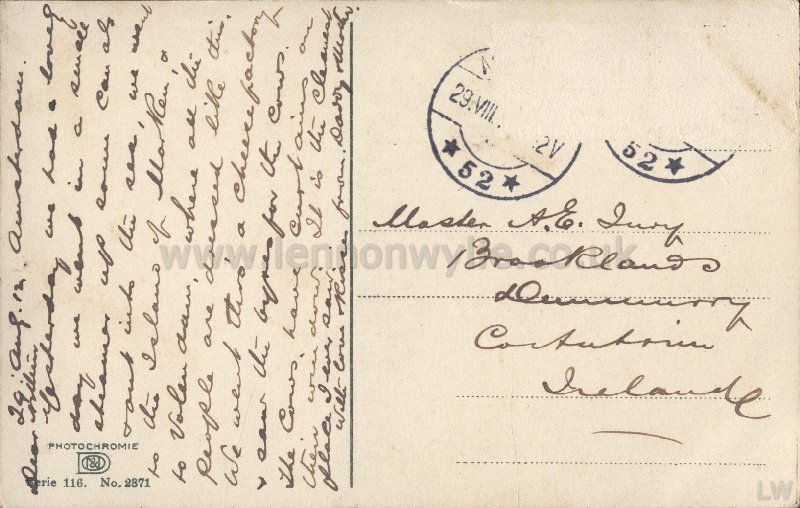 29 Aug. 12. Amsterdam.
Dear
Yesterday we had a lovely
day we went in a small
steamer up some canals
& out into the sea, we went
to the Island of Marken, &
to Volendam, where all the
People are dressed like this.
We went thro' a cheese factory
& saw the byres for the cows.
The Cows have curtains on
their windows. It is the cleanest
place I ever saw.
With love & kisses from Daddy & Mother
PHOTOCHROMIE
Serie 116. No. 2371
29.VIII. 12V
52
52
Master A.E. Ivory
Brooklands
Dunmurry
Co Antrim
Ireland
www.lennonwylie.co.uk
LW